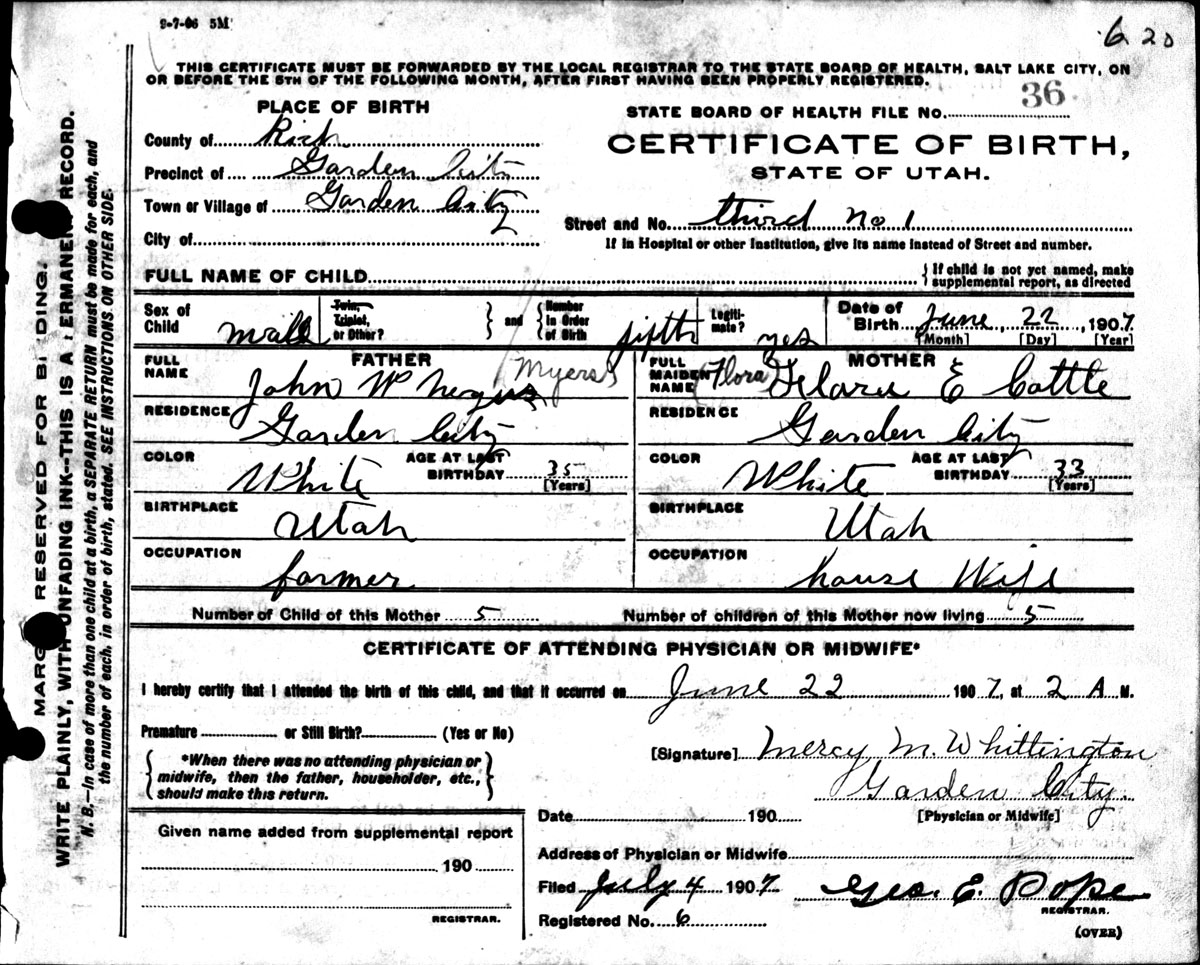 9-7-06 5M
6 20
THIS CERTIFICATE MUST BE FORWARDED BY THE LOCAL REGISTRAR TO THE STATE BOARD OF HEALTH, SALT LAKE CITY, ON
OR BEFORE THE 5TH OF THE FOLLOWING MONTH, AFTER FIRST HAVING BEEN PROPERLY REGISTERED.
PLACE OF BIRTH
STATE BOARD OF HEALTH FILE No. 36
County of Rich
CERTIFICATE OF BIRTH,
STATE OF UTAH.
Precinct of Garden City
Town or Village of Garden City
Street and No. third no 1
City of
If in Hospital or other Institution, give its name instead of Street and number.
FULL NAME OF CHILD
{ If child is not yet named, make
supplemental report, as directed
Sex of Child male
Twin, Triplet, or Other? } and { Number in Order of Birth fifth
Legiti-mate? yes
Date of Birth June, 22, 1907
[Month] [Day] [Year]
FATHER
FULL NAME John W (Myers)
RESIDENCE Garden City
COLOR White
AGE AT LAST BIRTHDAY 35 [Years]
BIRTHPLACE Utah
OCCUPATION farmer
MOTHER
FULL MAIDEN NAME (Flora) E Cottle
RESIDENCE Garden City
COLOR White
AGE AT LAST BIRTHDAY 33 [Years]
BIRTHPLACE Utah
OCCUPATION house Wife
Number of Child of this Mother 5
Number of children of this Mother now living 5
CERTIFICATE OF ATTENDING PHYSICIAN OR MIDWIFE*
I hereby certify that I attended the birth of this child, and that it occurred on June 22 1907, at 2 A M.
Premature or Still Birth? (Yes or No)
{ *When there was no attending physician or
midwife, then the father, householder, etc.,
should make this return. }
[Signature] Mercy M. Whittington
Garden City.
Date 190
[Physician or Midwife]
Given name added from supplemental report
190
REGISTRAR.
Address of Physician or Midwife
Filed July 4 1907
Geo. E. Pope
REGISTRAR.
Registered No. 6
(OVER)
MARG RESERVED FOR BI DING.
WRITE PLAINLY, WITH UNFADING INK--THIS IS A ERMANEN RECORD.
N. B.—In case of more than one child at a birth, a SEPARATE RETURN must be made for each, and
the number of each, in order of birth, stated. SEE INSTRUCTIONS ON OTHER SIDE.